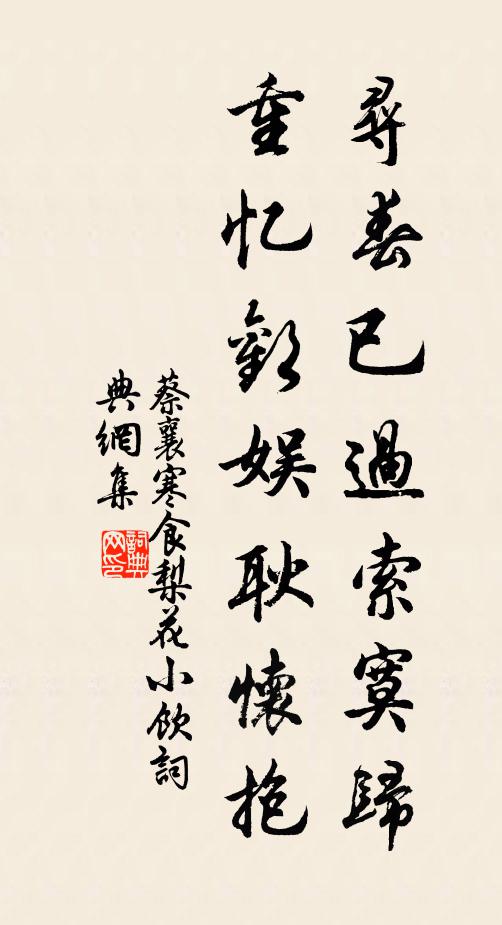 尋春已過索寞歸
重忆歡娱耿懷抱
蔡襄寒食梨花小飲詞
典網集
詞典
网印